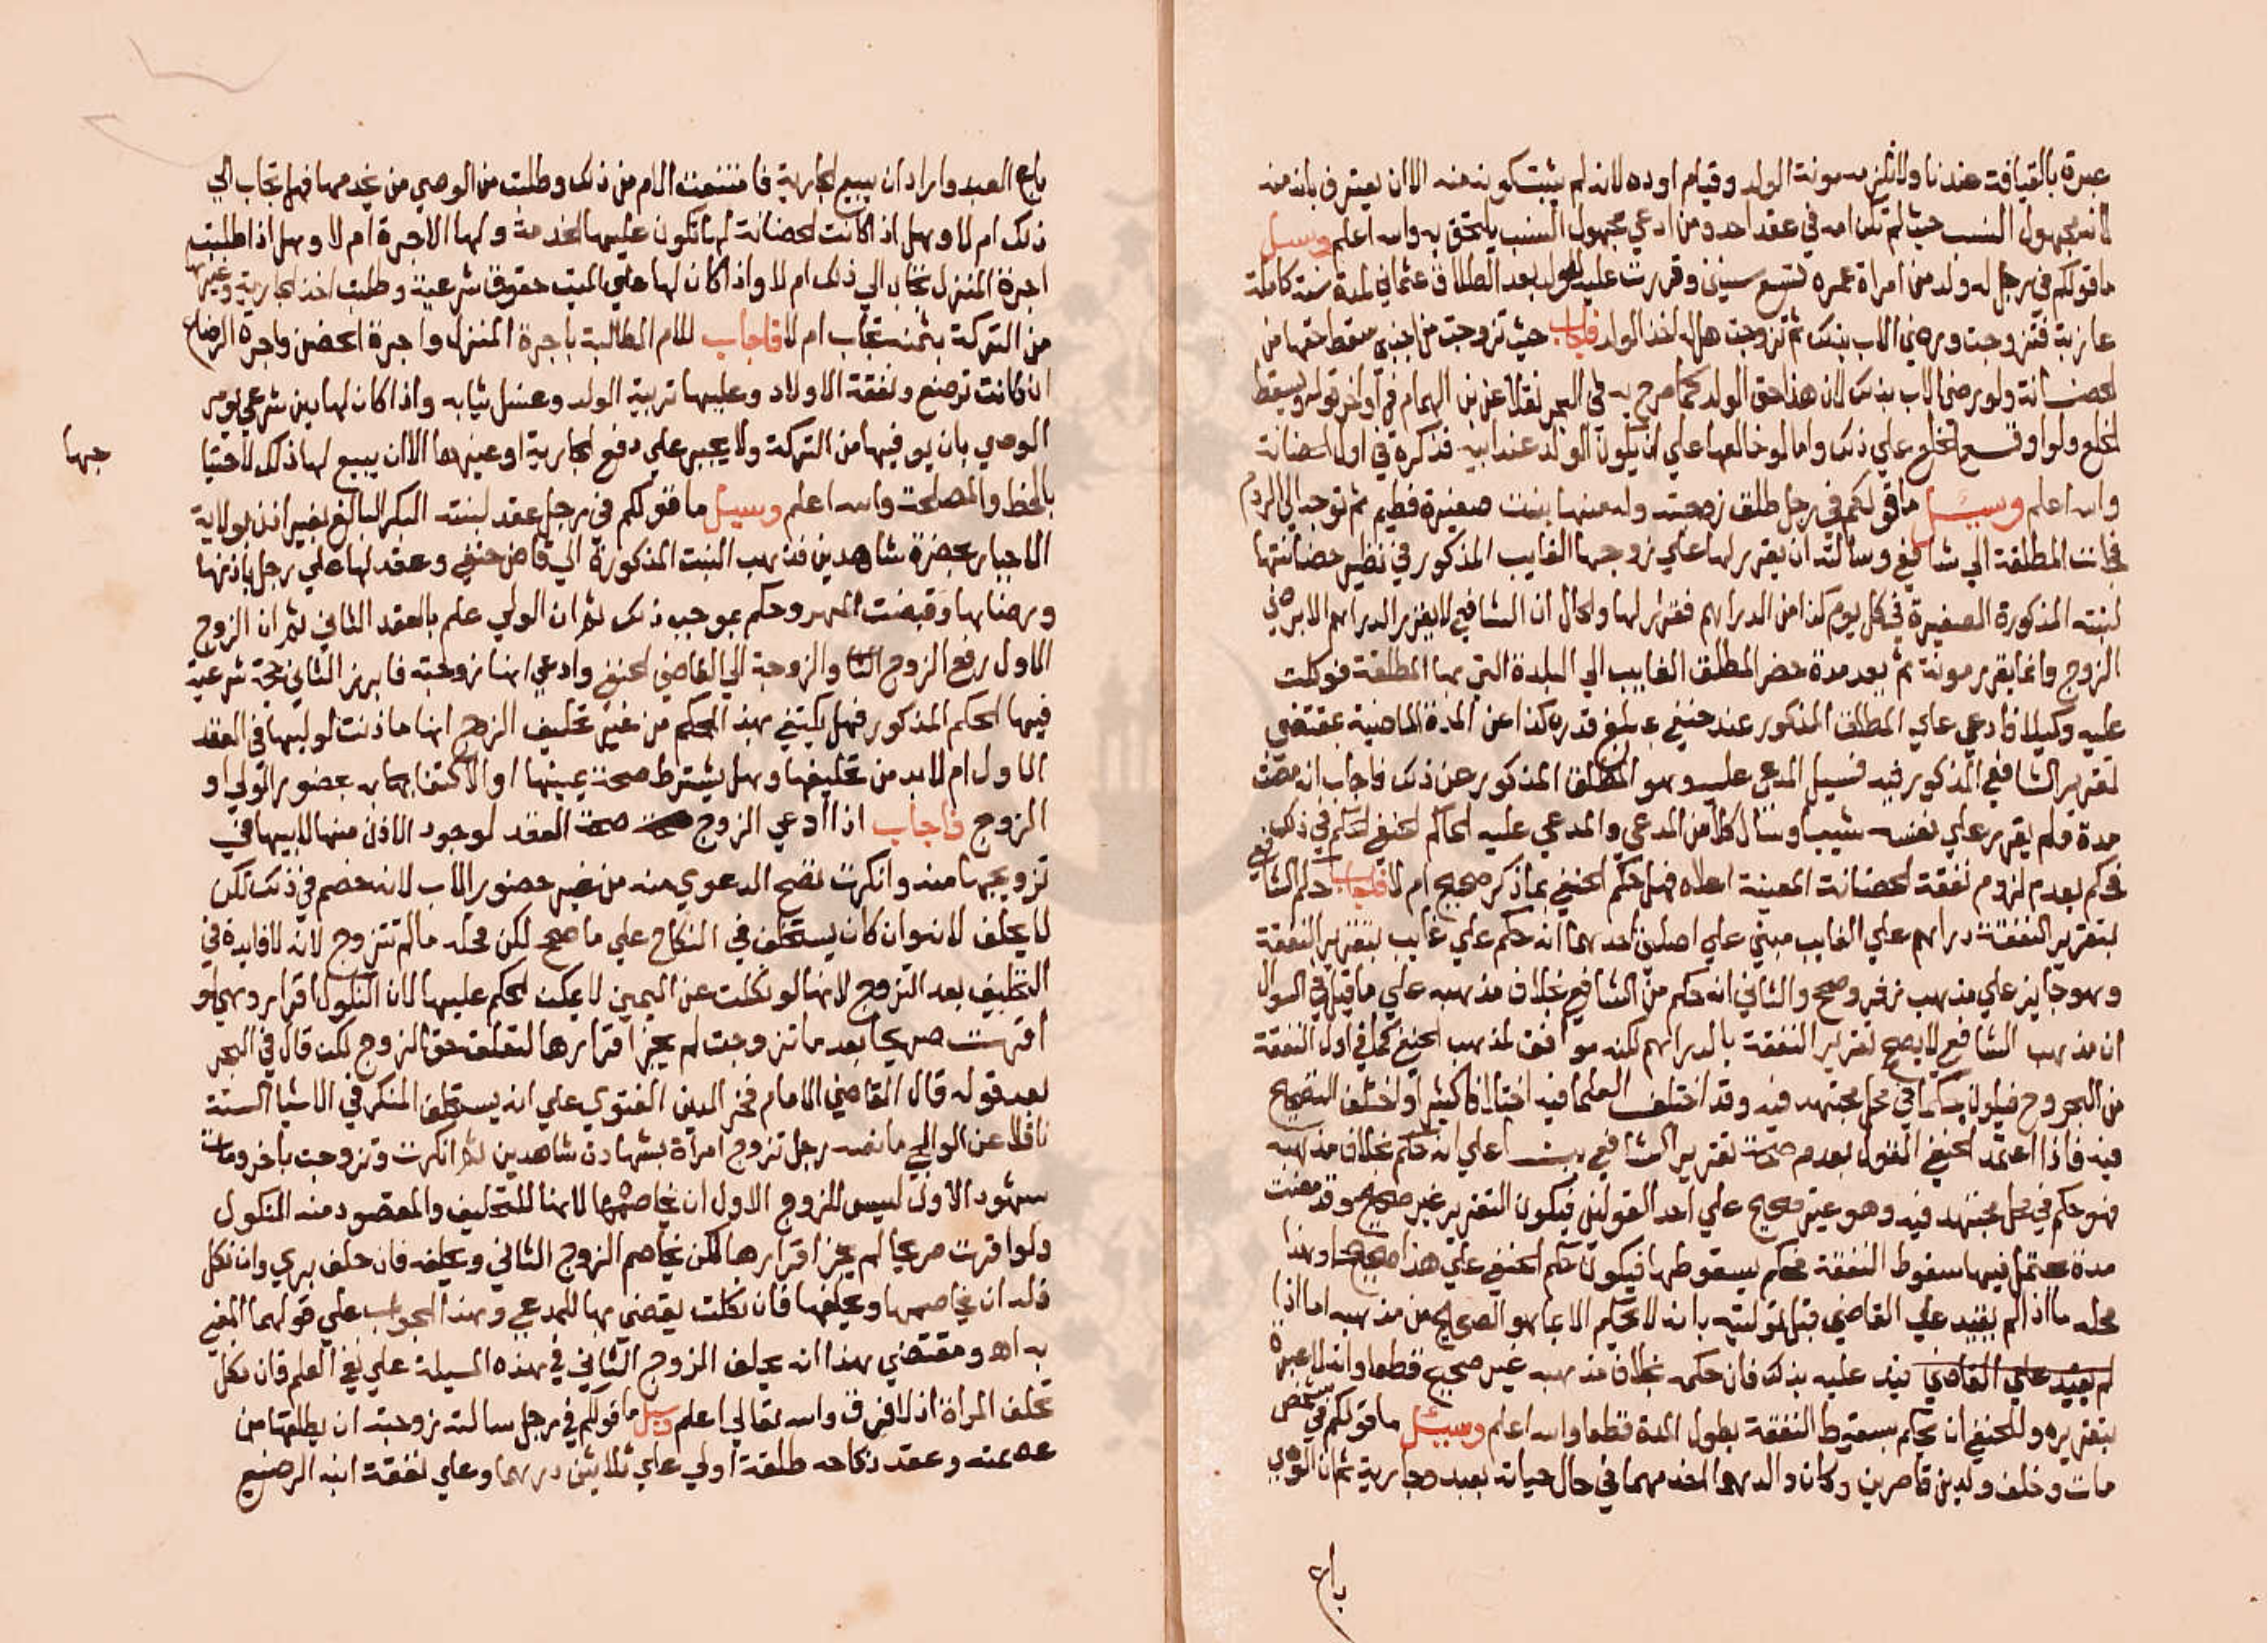 عبرة بالقيافة عندنا ولا تلزمه مونة الولد وقيام اوده لانه لم يثبت كونه منه الا ان يعترف بانه منه
لانه مجهول النسب حيث لم تكن امه في عقد احد ومن ادعي مجهول النسب يلتحق به والله اعلم وسيل
ما قولكم في رجل له ولد من امراة عمره تسع سنين وقررت عليه للولد بعد الطلاق عثماني لمدة سنة كاملة
عازبة فتزوجت ورضي الاب بذلك ثم تزوجت هل له اخذ الولد فاجاب حيث تزوجت من اجنبي سقط حقها من
الحضانة ولو رضي الاب بذلك لان هذا حق الولد كما صرح به في البحر نقلا عن بن الهمام في اواخر قوله ويسقط
الخلع ولو اوقع الخلع علي ذلك واما لو خالعها علي ان يكون الولد عند ابيه فذكره في اول الحضانة
والله اعلم وسيل ما قولكم في رجل طلق زوجته وله منها بنت صغيرة فطيم ثم توجه الي الروم
فجات المطلقة الي شافعي وسالته ان يقرر لها علي زوجها الغايب المذكور في نظير حضانتها
لبنته المذكورة الصغيرة في كل يوم كذا من الدراهم فقرر لها والحال ان الشافعي لا يقرر الدراهم الا برضي
الزوج وانما يقرر مونة ثم بعد مدة حضر المطلق الغايب الي البلدة التي بها المطلقة فوكلت
عليه وكيلا فادعي علي المطلق المذكور عند حنفي بمبلغ قدره كذا عن المدة الماضية بمقتضي
تقرير الشافعي المذكور فيه فسيل المدعي عليه وهو المطلق المذكور عن ذلك فاجاب انه مضت
مدة ولم يقرر علي نفسه شييا وسال كلا من المدعي والمدعي عليه الحاكم الحنفي الحكم في ذلك
فحكم بعدم لزوم نفقة الحضانة المعينة اعلاه فهل حكم الحنفي بما ذكر صحيح ام لا فاجاب حكم الشافعي
بتقرير النفقة دراهم علي الغايب مبني علي اصلين احدهما انه حكم علي غايب بتقرير النفقة
وهو جايز علي مذهب زفر وصحح والثاني انه حكم من الشافعي بخلاف مذهبه علي ما قيل في السوال
ان مذهب الشافعي لا يصح تقرير النفقة بالدراهم لكنه موافق لمذهب الحنفي كما في اول النفقة
من البحر وح فيكون حكما في محل مجتهد فيه وقد اختلف العلما فيه اختلافا كثيرا واختلف التصحيح
فيه فاذا اعتمد الحنفي القول بعدم صحة تقرير الشافعي بنا علي انه حكم بخلاف مذهبه
فهو حكم في محل مجتهد فيه وهو غير صحيح علي احد القولين فيكون التقرير غير صحيح وقد مضت
مدة تحتمل فيها سقوط النفقة فحكم بسقوطها فيكون حكم الحنفي علي هذا صحيحا وهذا
محله ما اذا لم يقيد علي القاضي قبل توليته بانه لا يحكم الا بما هو الصحيح من مذهبه اما اذا
لم يقيد علي القاضي قيد عليه بذلك فان حكمه بخلاف مذهبه غير صحيح قطعا وانه لا عبرة
بتقريره وللحنفي ان يحكم بسقوط النفقة بطول المدة قطعا والله اعلم وسيل ما قولكم في شخص
مات وخلف ولدين قاصرين وكان والدهما اخدمهما في حال حياته بعبد وجارية ثم ان الوصي
باع
باع العبد واراد ان يبيع الجارية فامتنعت الام من ذلك وطلبت من الوصي من يخدمها فهل تجاب الي
ذلك ام لا وهل اذا كانت الحضانة لها تكون عليها الخدمة ولها الاجرة ام لا وهل اذا طلبت
اجرة المنزل تجاب الي ذلك ام لا واذا كان لها علي الميت حقوق شرعية وطلبت اخذ الجارية وغيرها
من التركة بثمنه تجاب ام لا فاجاب للام المطالبة باجرة المنزل واجرة الحضن واجرة الرضاع
ان كانت ترضع ونفقة الاولاد وعليها تربية الولد وغسل ثيابه واذا كان لها دين شرعي يومر
الوصي بان يوفيها من التركة ولا يجبر علي دفع الجارية او عينها الا ان يبيع لها ذلك لاحتيا
جها
بالحظ والمصلحة والله اعلم وسيل ما قولكم في رجل عقد لبنته البكر البالغ بغير اذن بولاية
الاجبار بحضرة شاهدين فذهب البنت المذكورة الي قاض حنفي وعقد لها علي رجل باذنها
ورضاها وقبضت المهر وحكم بموجب ذلك ثم ان الولي علم بالعقد الثاني ثم ان الزوج
الاول رفع الزوج الثاني والزوجة الي القاضي الحنفي وادعي انها زوجته فابرز الثاني حجة شرعية
فيها الحكم المذكور فهل يكتفي بهذا الحكم من غير تحليف الزوج انها ما اذنت لوليها في العقد
الاول ام لا بد من تحليفها وهل يشترط صحة يمينها او الاكتفا بها به بحضور الولي او
الزوج فاجاب اذا ادعي الزوج صحة العقد لوجود الاذن منها لابيها في
تزويجها منه وانكرت تصح الدعوي منه من غير حضور الاب لانه خصم في ذلك لكن
لا يحلف لانه وان كان يستحلف في النكاح علي ما صحح لكن محله ما لم تتزوج لانه لا فايدة في
التحليف بعد التزوج لانها لو نكلت عن اليمين لا يمكن الحكم عليها لان النكول اقرار وهي لو
اقرت صريحا بعد ما تزوجت لم يجز اقرارها لتعلق حق الزوج لكن قال في البحر
بعد قوله قال القاضي الامام فخر الدين الفتوي علي انه يستحلف المنكر في الاشيا الستة
ناقلا عن الوالجي ما نصه رجل تزوج امراة بشهادة شاهدين ثم انكرت وتزوجت باخر ومات
شهود الاول ليس للزوج الاول ان يخاصمها لانها للتحليف والمقصود منه النكول
ولو اقرت صريحا لم يجز اقرارها لكن يخاصم الزوج الثاني ويحلفه فان حلف بري وان نكل
فله ان يخاصمها ويحلفها فان نكلت يقضي بها للمدعي وهذا الجواب علي قولهما المفتي
به اه ومقتضي هذا انه يحلف الزوج الثاني في هذه المسيلة علي نفي العلم فان نكل
تحلف المراة اذ لا فرق والله تعالي اعلم وسيل ما قولكم في رجل سالته زوجته ان يطلقها من
عصمته وعقد نكاحه طلقة اولي علي ثلاثين درهما وعلي نفقة ابنه الرضيع